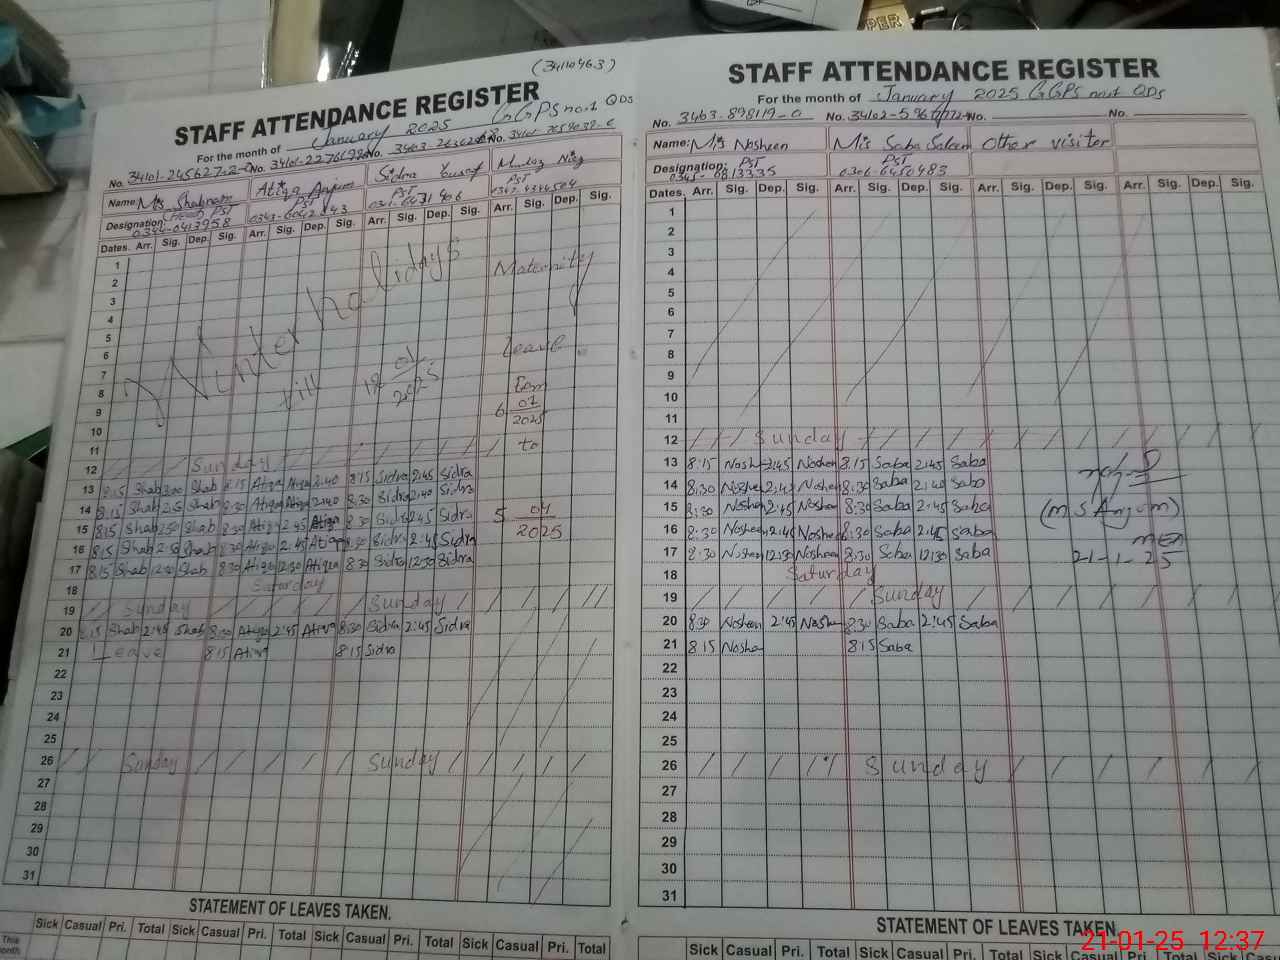 (34110463)
STAFF ATTENDANCE REGISTER
For the month of January 2025 GGPS no.1 QDS
No. No. No. No.
Name: Mis Shabnam Atiqa Anjum Sidra Yusaf Mumtaz Niaz
Designation: (Head) PST PST PST PST
Dates. Arr. Sig. Dep. Sig. Arr. Sig. Dep. Sig. Arr. Sig. Dep. Sig. Arr. Sig. Dep. Sig.
1
2 Maternity
3
4
5
6 Winter holidays Leave
7 till 12 01 2025
8
9 6 01 2025
10
11 to
12 Sunday
13 8:15 Shab 3:00 Shab 8:15 Atiqa Atiqa 2:40 8:15 Sidra 2:45 Sidra
14 8:15 Shab Shab Atiqa Atiqa 2:40 8:30 Sidra 2:40 Sidra
15 8:15 Shab 2:50 Shab 8:30 Atiqa 2:45 Atiqa 8:30 Sidra 2:45 Sidra 5 04 2025
16 8:15 Shab 2:50 Shab 8:30 Atiqa 2:45 Atiqa 8:30 Sidra 2:45 Sidra
17 8:15 Shab 12:30 Shab 8:30 Atiqa 12:30 Atiqa 8:30 Sidra 12:30 Sidra
18 Saturday
19 Sunday Sunday
20 8:15 Shab 2:45 Shab 8:30 Atiqa 2:45 Atiqa 8:30 Sidra 2:45 Sidra
21 Leave 8:15 Atiqa 8:15 Sidra
22
23
24
25
26 Sunday Sunday
27
28
29
30
31
STATEMENT OF LEAVES TAKEN.
Sick Casual Pri. Total Sick Casual Pri. Total Sick Casual Pri. Total Sick Casual Pri. Total
This month
STAFF ATTENDANCE REGISTER
For the month of January 2025 GGPS no.1 QDS
No. No. No. No.
Name: Mis Nosheen Mis Saba Saleem Other visitor
Designation: PST PST
0345-6813335 0306-6450483
Dates. Arr. Sig. Dep. Sig. Arr. Sig. Dep. Sig. Arr. Sig. Dep. Sig. Arr. Sig. Dep. Sig.
1
2
3
4
5
6
7
8
9
10
11
12 Sunday
13 8:15 Nosh 2:45 Nosheen 8:15 Saba 2:45 Saba
14 8:30 Nosheen 2:45 Nosheen 8:30 Saba 2:40 Saba
15 8:30 Nosheen 2:45 Nosheen 8:30 Saba 2:45 Saba (MS Anjum)
16 8:30 Nosheen 2:45 Nosheen 8:30 Saba 2:45 Saba
17 8:30 Nosheen 12:30 Nosheen 8:30 Saba 12:30 Saba 21-1-25
18 Saturday
19 Sunday
20 8:30 Nosheen 2:45 Nosheen 8:30 Saba 2:45 Saba
21 8:15 Nosheen 8:15 Saba
22
23
24
25
26 Sunday
27
28
29
30
31
STATEMENT OF LEAVES TAKEN.
Sick Casual Pri. Total Sick Casual Pri. Total Sick Casual Pri. Total Sick Casual
21-01-25 12:37